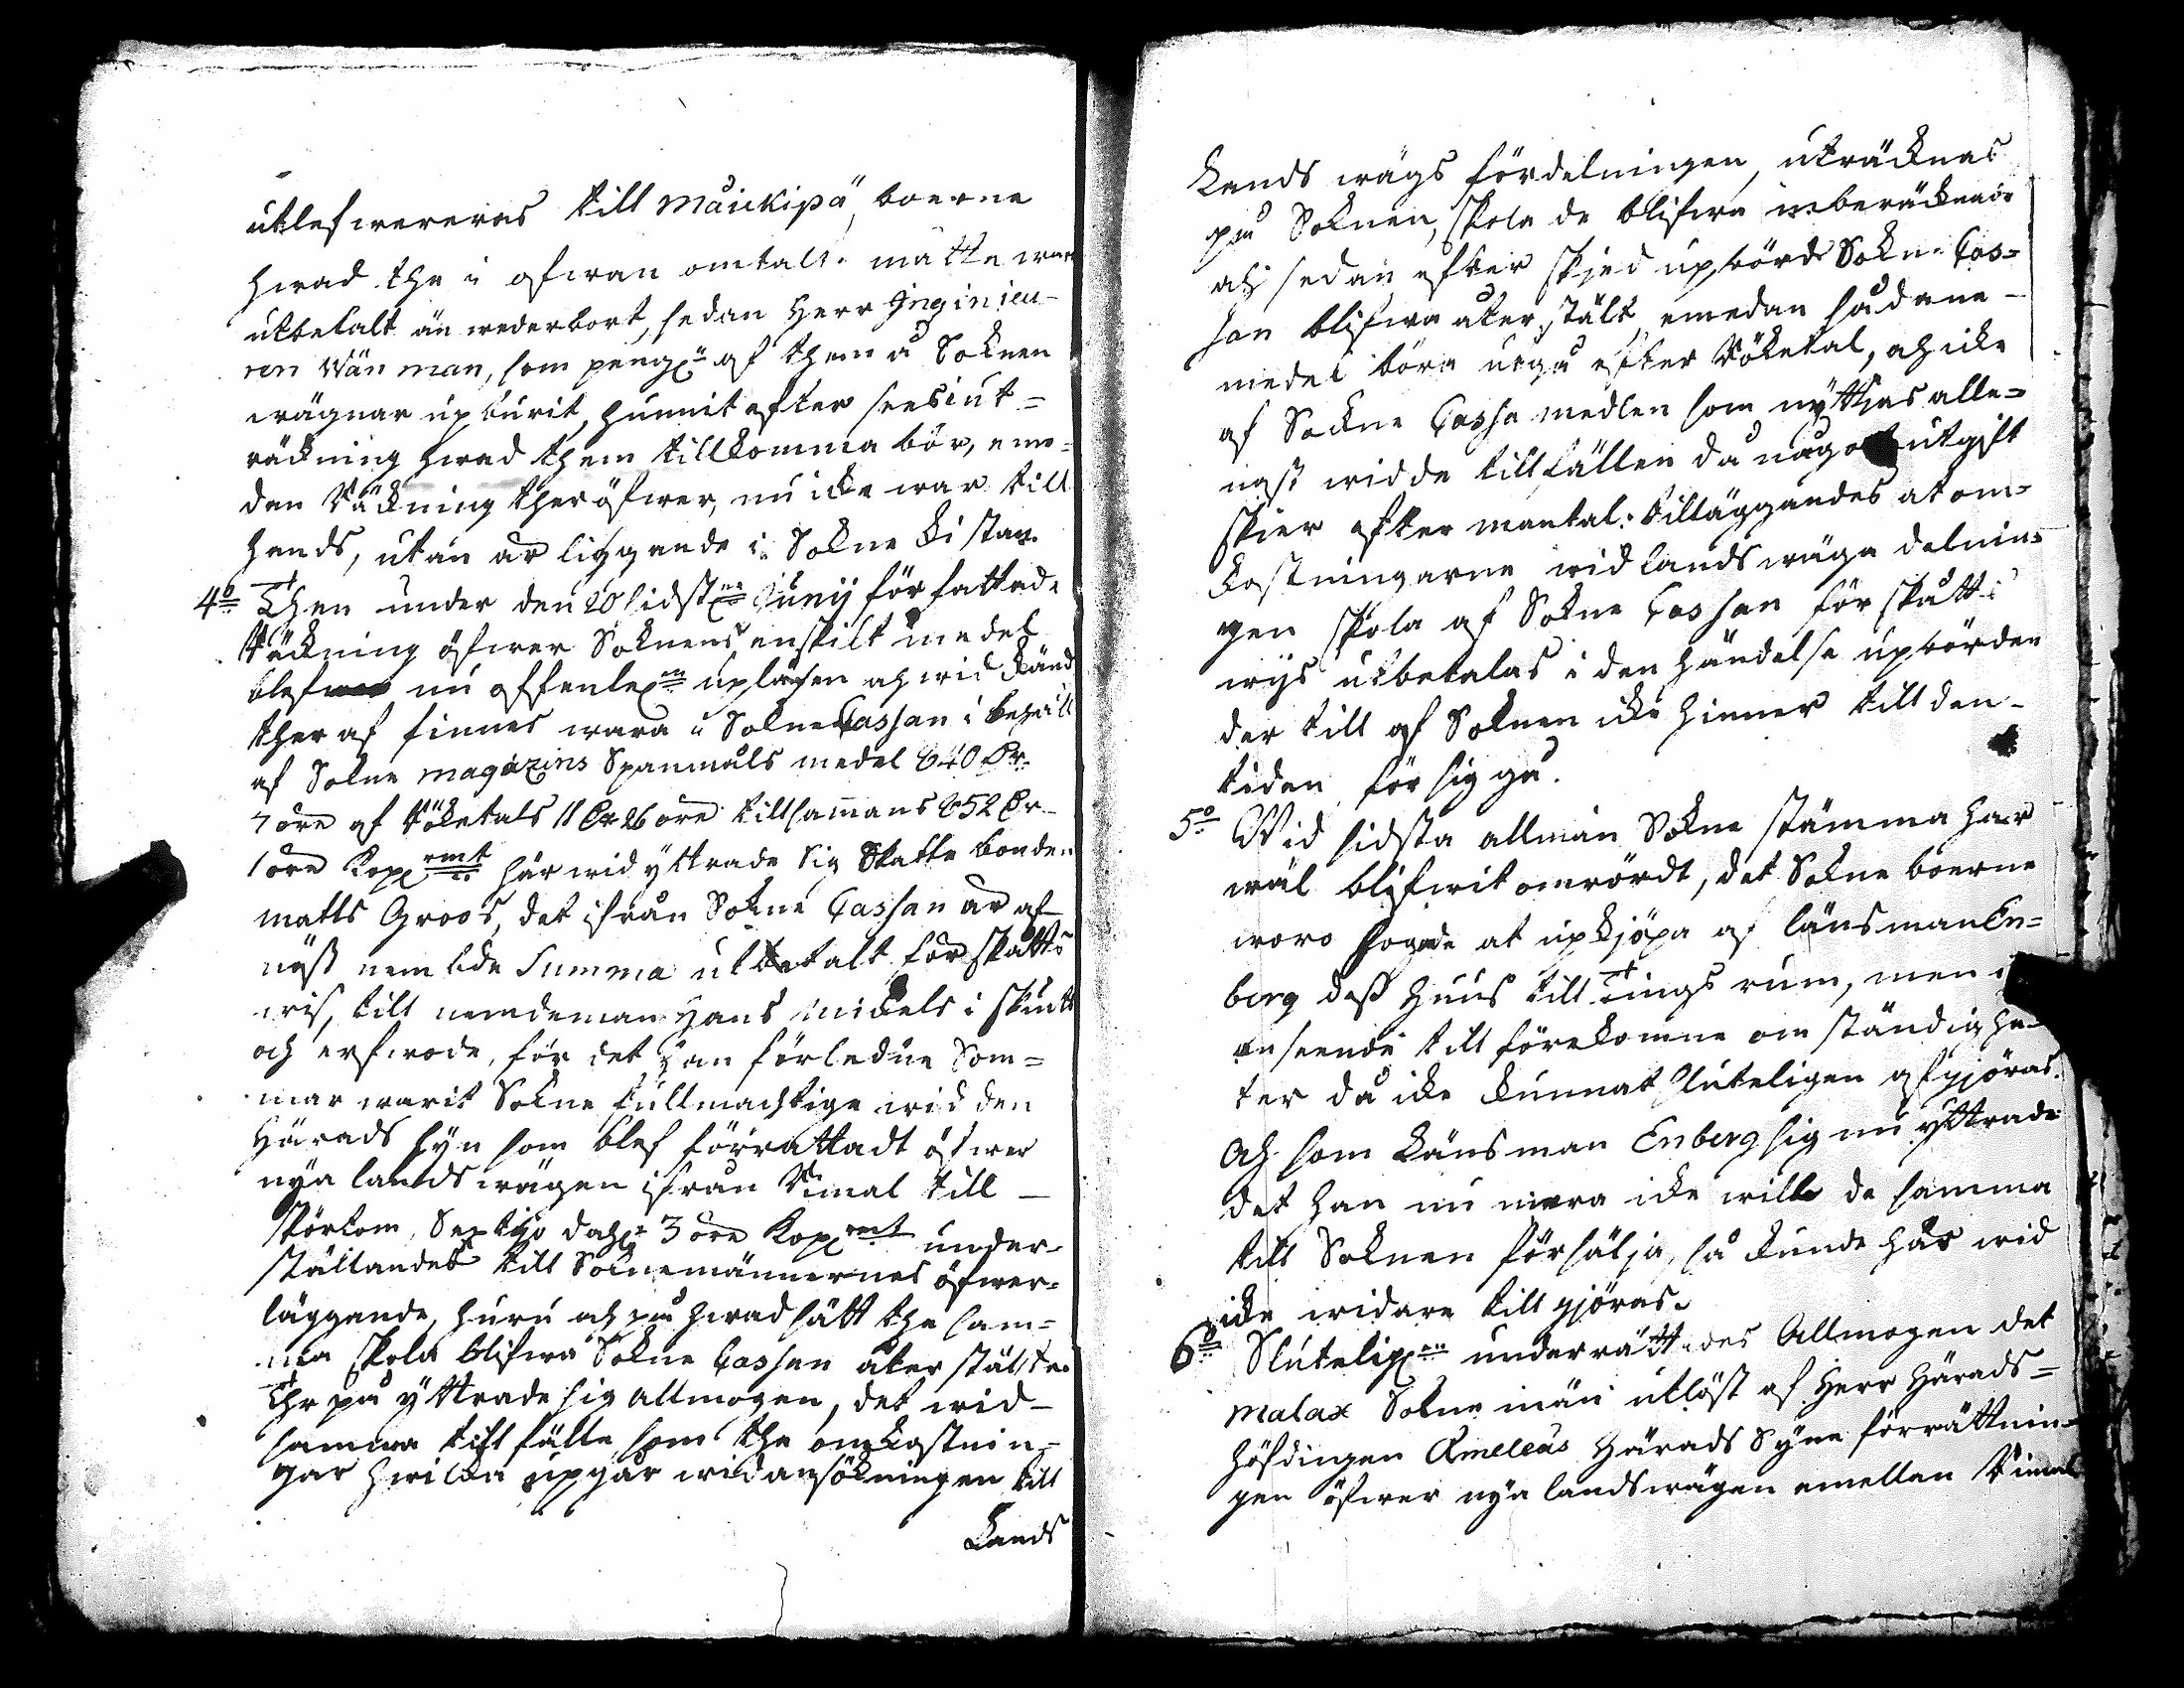 utlefwereras till Måickipä, boerne
hwad the i ofwan omtalte måtte war
utbetalt än wederbort, sedan Herr Inginieu-
ren Wänman, som peng:r af them å Soknen
wägnar upburit, hunnit efter see sin ut-
räckning hwad them tillkomma bör, eme-
dan Räckning ther öfwer, nu icke war till
hands, utan är liggande i Sokne Kistan.
4:o Then under den 20 sidstl:ne Junij författade
Räckning öfwer Soknens enskilt medel
blef nu offentel:n upläsen och widkänd
ther af finnes wara i Sokne Cassan i behåll
af Sokne magazins Spanmåls medel 640 Dr
7 öre af Röketals 11 Dr 26 öre tillsammans 652 Dr
1 öre Kopp:rmt här wid yttrade sig Skatte bonden
Matts Groos, det ifrån Sokne Cassan är af
näst nembde Summa utbetalt förskotts
wis, till nemdeman Hans Mickels i
och arfwode, för det han förledne Som-
mar warit Sokne fullmächtige wid den
Härads Syn som blef förrättadt öfwer
nya landswägen ifrån Rimal till
Pörtom, Sextijo dahl:r 3 öre Kopp:rmt under-
ställandes till Soknemännernes öfwer-
läggande, huru och på hwad sätt the sam-
ma skola blifwa Sokne Cassan återstälte.
Ther på yttrade sig allmogen, det wid
samma tillfälle som the omkostnin-
gar hwilka upgår wid ansökningen till
Lands
Lands wägs fördelningen, uträcknas
på Soknen, skola de blifwa inberäcknade
och sedan efter skjed upbörd Sokne Cas-
san blifwa återstält, emedan sådane
medel böra utgå efter Röketal, och icke
af Sockne Cassa medlen som nyttjas alle-
nast wid de tillfällen då någon utgift
skier efter mantal: Tilläggandes at om-
kostningarne wid landswäga delnin-
gen skola af Sokne Cassan förskotts
wijs utbetalas i den händelse upbörden
der till af Soknen icke hinner till den
tiden för sig gå.
5:o Wid sidsta allmän Sokne stämma har
wäl blifwit omrördt, det Sokne boerne
woro hogade at upkjöpa af länsman En-
berg dess huus till Tings rum, men i
anseende till förekomne omständighe-
ter då icke kunnat sluteligen afgjöras.
Och som Länsman Enberg sig nu yttrade
det han nu mera icke wille de samma
till Soknen försälja, så kunde här wid
icke widare tillgjöras.
6:o Slutelig:n underrättades Allmogen det
Malax Sokne män utlöst af Herr Härads-
höfdingen Ameleus Härads Syne förrättnin-
gen öfwer nya landswägen emellan Rimal